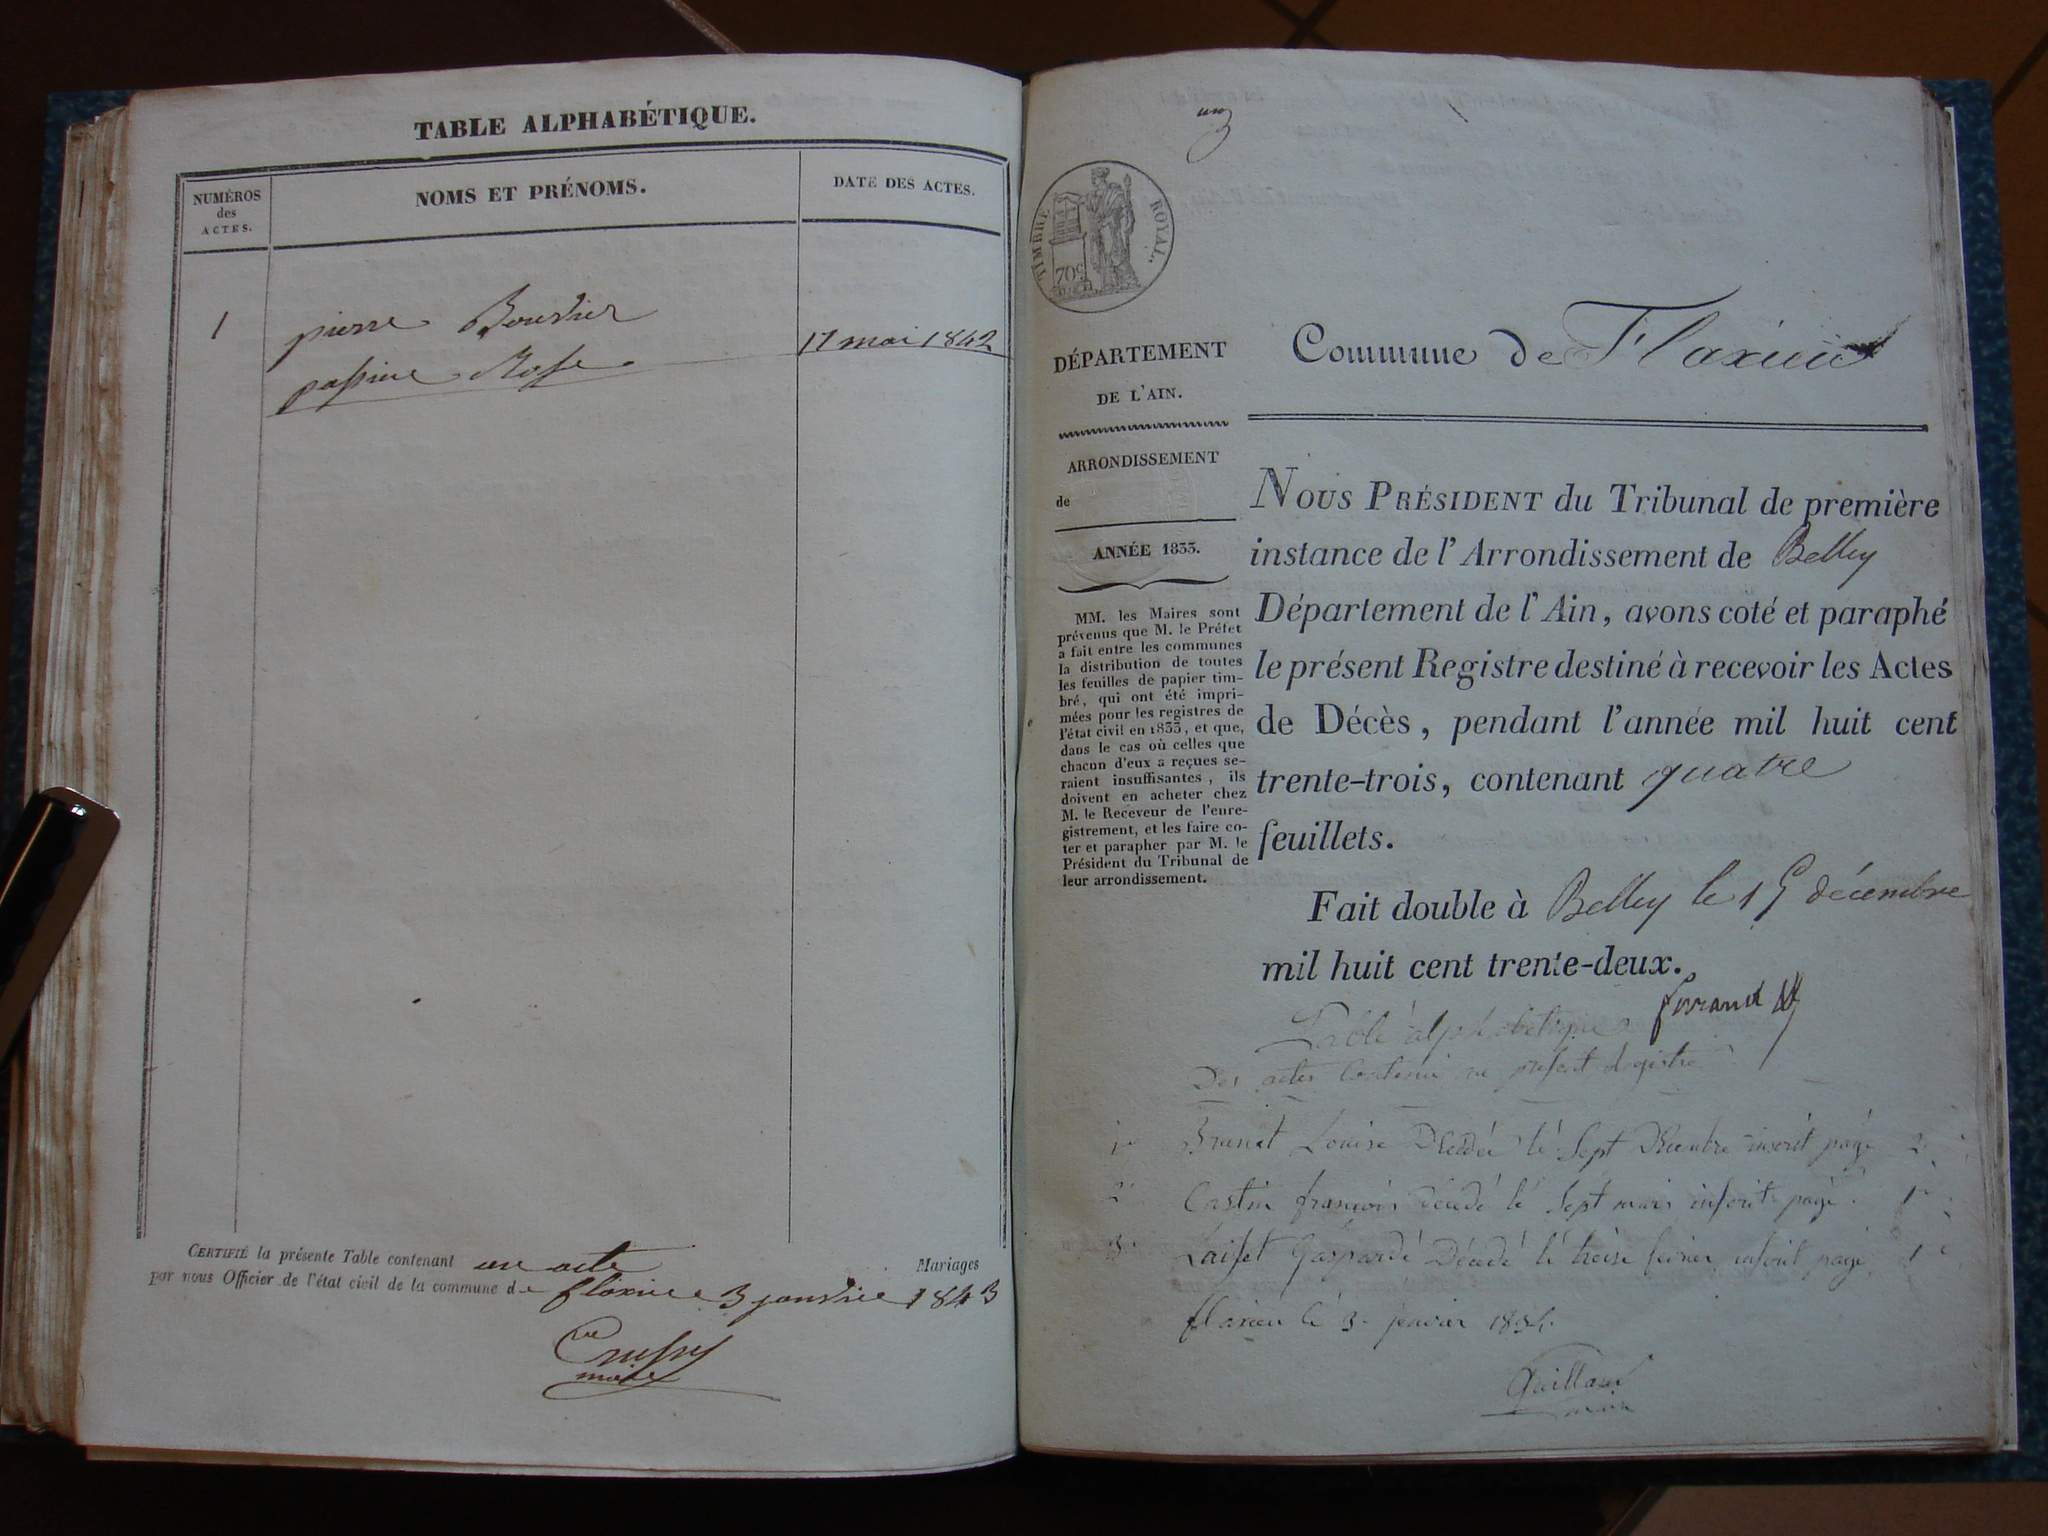 TABLE ALPHABÉTIQUE.
NUMÉROS
des
ACTES.
NOMS ET PRÉNOMS.
DATE DES ACTES.
1
pierre Bouvier
17 mai 1842
Rose
CERTIFIÉ la présente Table contenant un acte Mariages
par nous Officier de l'état civil de la commune de flaxieu 3 janvier 1843
maire
un
TIMBRE ROYAL
70c
DÉPARTEMENT
DE L'AIN.
ARRONDISSEMENT
de
ANNÉE 1833.
MM. les Maires sont
prévenus que M. le Préfet
a fait entre les communes
la distribution de toutes
les feuilles de papier tim-
bré, qui ont été impri-
mées pour les registres de
l'état civil en 1833, et que,
dans le cas où celles que
chacun d'eux a reçues se-
raient insuffisantes, ils
doivent en acheter chez
M. le Receveur de l'enre-
gistrement, et les faire co-
ter et parapher par M. le
Président du Tribunal de
leur arrondissement.
Commune de Flaxieu
NOUS PRÉSIDENT du Tribunal de première
instance de l'Arrondissement de Belley
Département de l'Ain, avons coté et paraphé
le présent Registre destiné à recevoir les Actes
de Décès, pendant l'année mil huit cent
trente-trois, contenant quatre
feuillets.
Fait double à Belley le 15 décembre
mil huit cent trente-deux.
Table alphabetique
Des actes Contenu au présent registre
1º Brunet Louise Décédée lé Sept Décembre inscrit page 2
2º françois décédé lé Sept mars inscrit page 1
3º Gaspardé Décédé lé treise fevrier inscrit page 1
flaxieu lé 3 janvier 1834